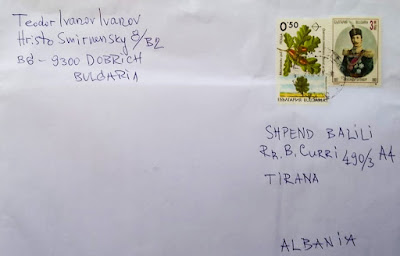 Teodor Ivanov Ivanov
Hristo Smirnensky 8/B2
BG - 9300 DOBRICH
BULGARIA
0.50
БЪЛГАРИЯ
БЪЛГАРИЯ
3
SHPEND BALILI
RR. B. CURRI 490/3 A4
TIRANA
ALBANIA